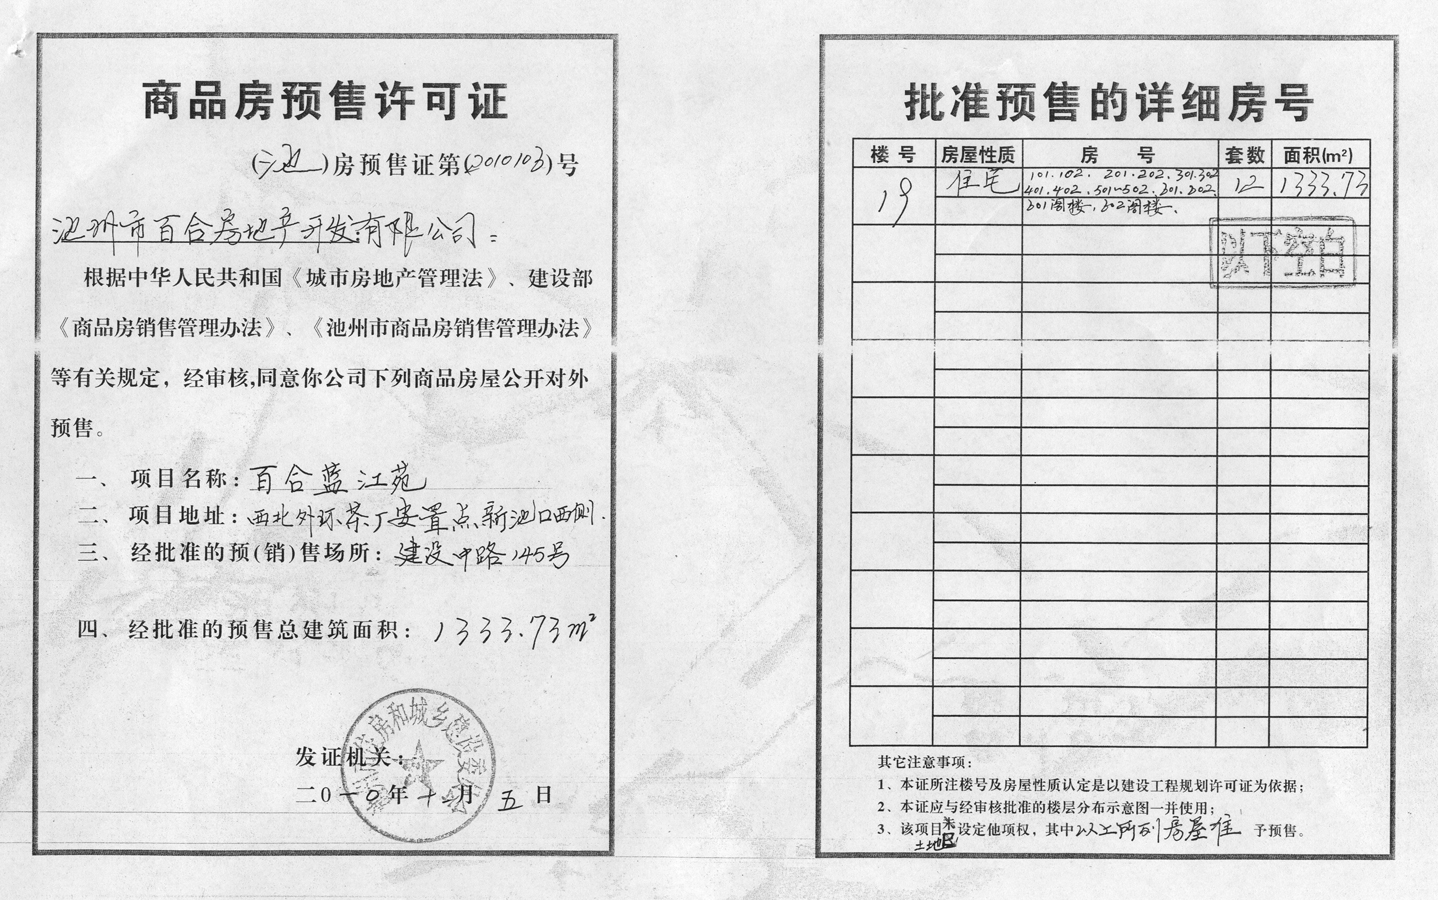 商品房预售许可证
(池)房预售证第(2010103)号
池州市百合房地产开发有限公司：
根据中华人民共和国《城市房地产管理法》、建设部
《商品房销售管理办法》、《池州市商品房销售管理办法》
等有关规定，经审核,同意你公司下列商品房屋公开对外
预售。
一、项目名称：百合蓝江苑
二、项目地址：西北外环茶厂安置点新池口西侧.
三、经批准的预(销)售场所：建设中路145号
四、经批准的预售总建筑面积：1333.73m²
池州市住房和城乡建设委员会
发证机关：
二0一0年十二月五日
批准预售的详细房号
楼号 房屋性质 房号 套数 面积(m²)
19 住宅 101.102. 201.202.301.302 12 1333.73
401.402.501~502.601.602.
601阁楼,602阁楼.
以下空白
其它注意事项：
1、本证所注楼号及房屋性质认定是以建设工程规划许可证为依据；
2、本证应与经审核批准的楼层分布示意图一并使用；
3、该项目未设定他项权，其中以上所列房屋准予预售。
土地已